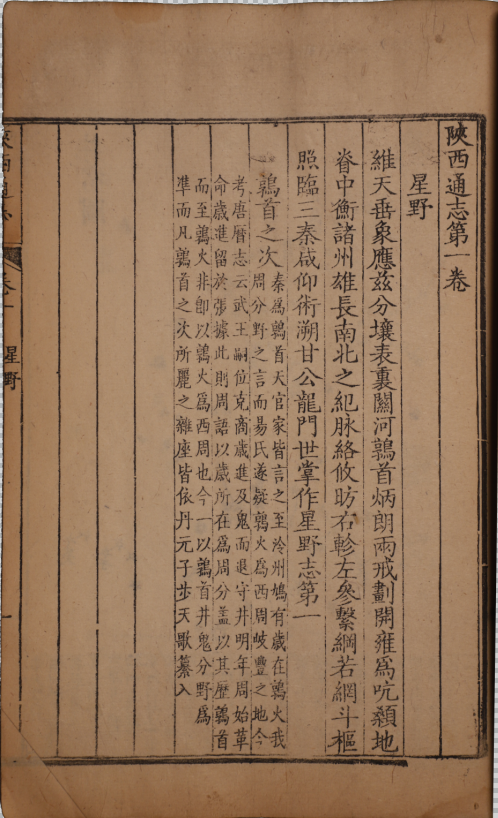 陝西通志第一卷
星野
維天垂象應茲分壤表裏關河鶉首炳朗兩戒劃開雍為吭顙地
脊中衡諸州雄長南北之紀脉絡攸昉右軫左參繫綱若網斗樞
照臨三秦咸仰術溯甘公龍門世掌作星野志第一
鶉首之次
秦為鶉首天官家皆言之至泠州鳩有歲在鶉火我
周分野之言而易氏遂疑鶉火為西周岐豐之地今
考唐曆志云武王嗣位克商歲進及鬼而退守井明年周始革
命歲進留於張據此則周語以歲所在為周分盖以其歷鶉首
而至鶉火非卽以鶉火為西周也今一以鶉首井鬼分野為
準而凡鶉首之次所麗之雜座皆依丹元子步天歌纂入
陝西通志
卷一
星野
一